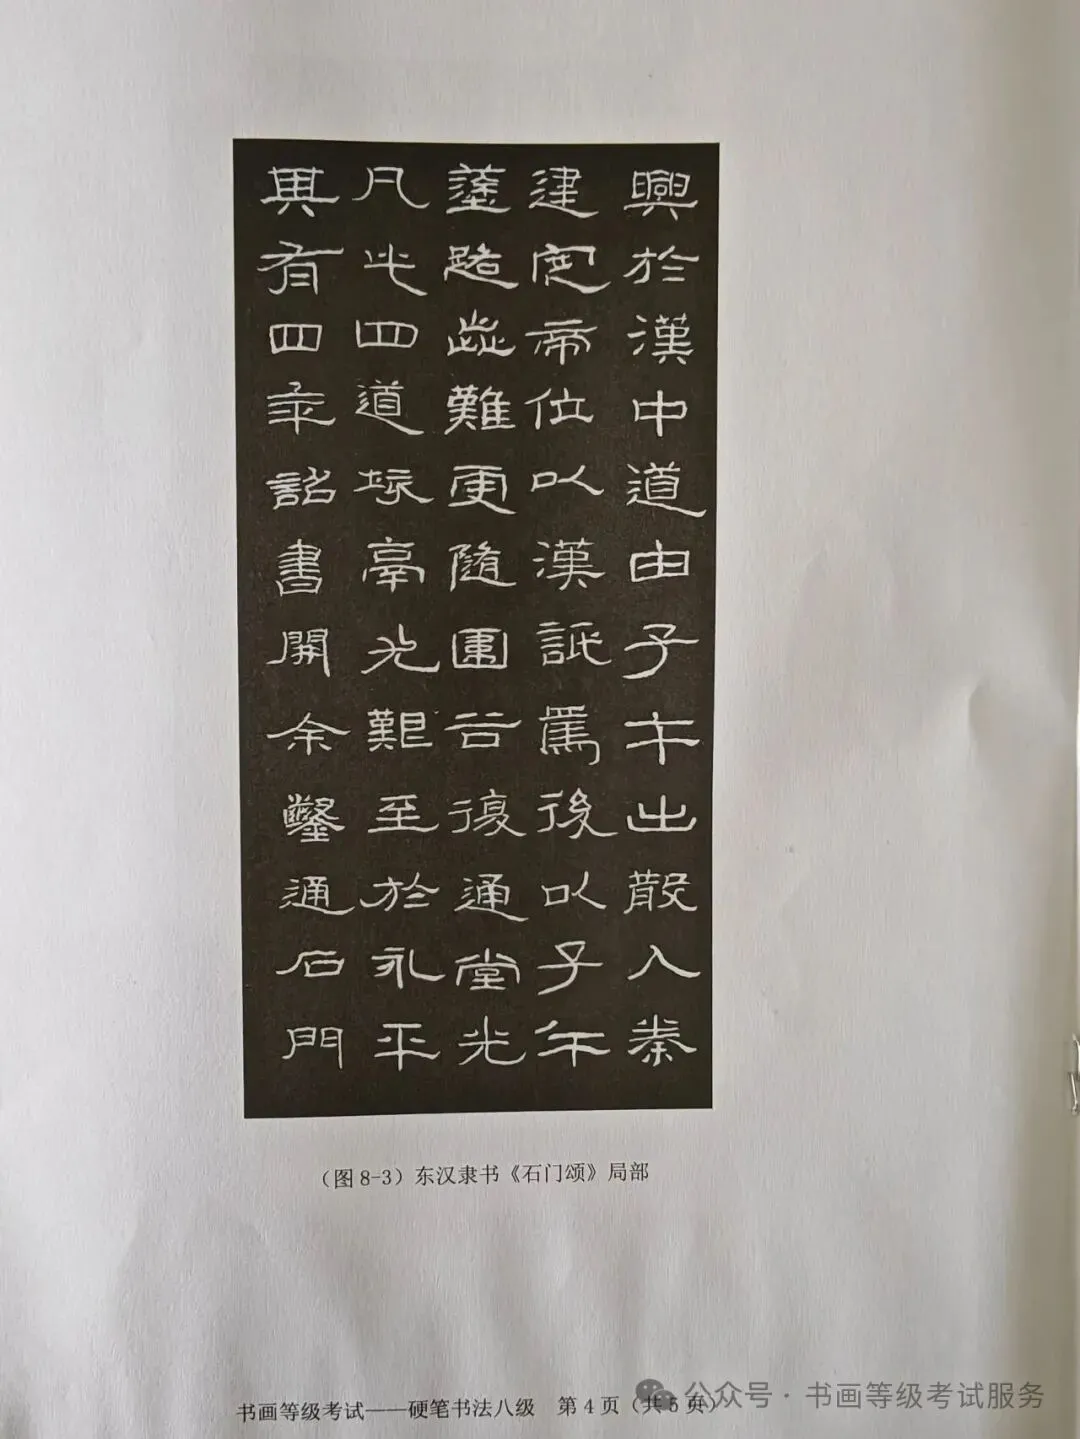 興於漢中道由子午出散入秦
建定帝位以漢詆焉後以子午
塗路歮難更隨圍谷復通堂光
凡此四道垓鬲尤艱至於永平
其有四年詔書開余鑿通石門
（图8-3）东汉隶书《石门颂》局部
书画等级考试——硬笔书法八级　第4页（共5页）
公众号·书画等级考试服务